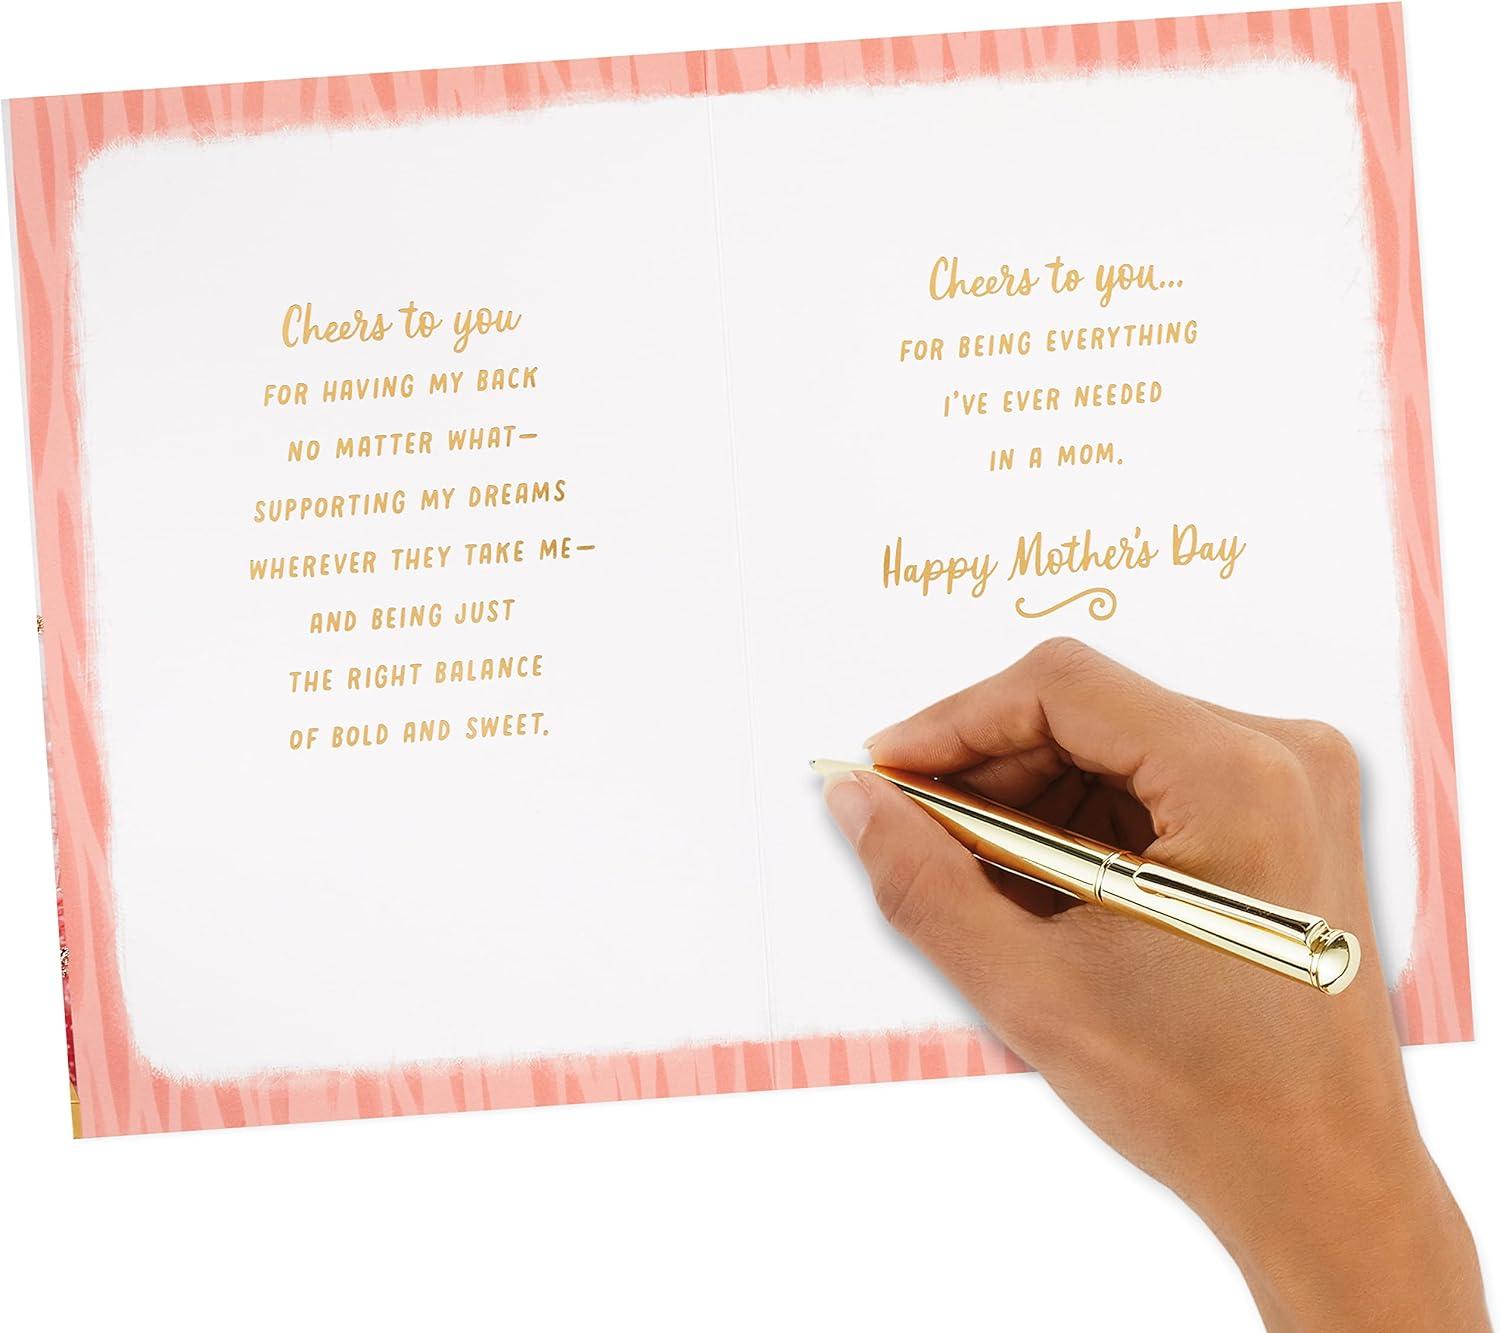 Cheers to you
FOR HAVING MY BACK
NO MATTER WHAT—
SUPPORTING MY DREAMS
WHEREVER THEY TAKE ME—
AND BEING JUST
THE RIGHT BALANCE
OF BOLD AND SWEET.
Cheers to you...
FOR BEING EVERYTHING
I'VE EVER NEEDED
IN A MOM.
Happy Mother's Day